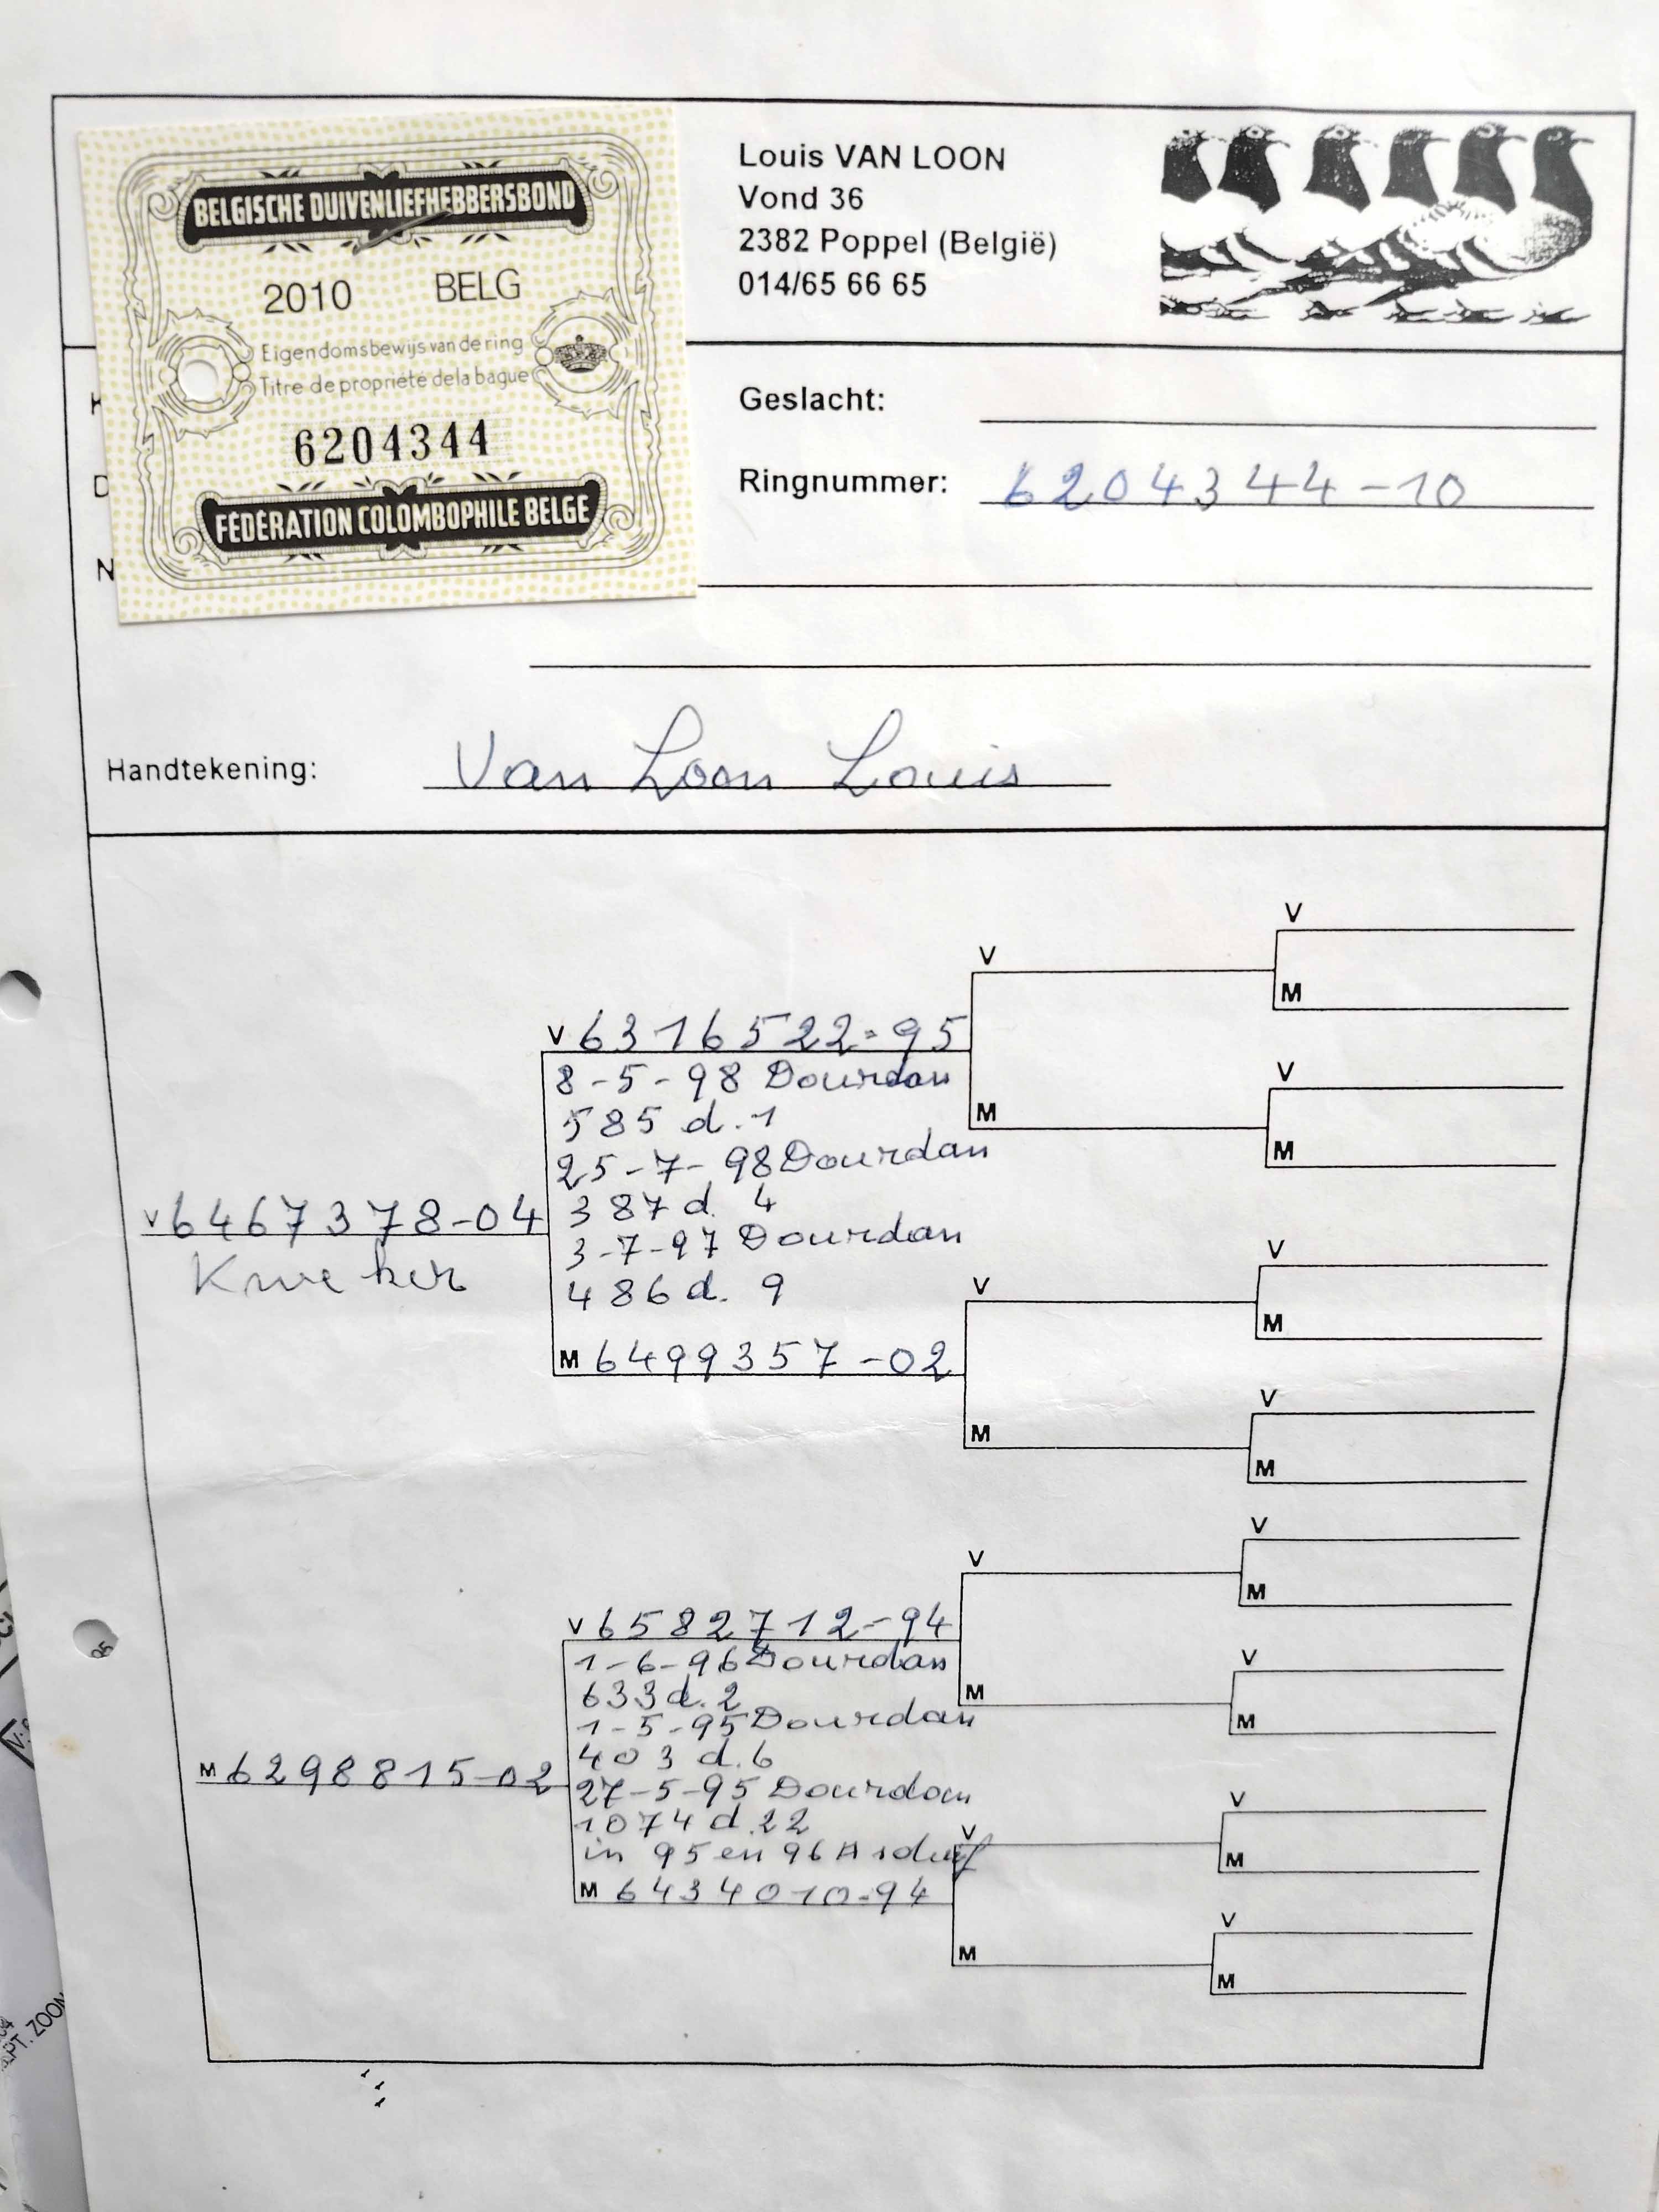 BELGISCHE DUIVENLIEFHEBBERSBOND
2010 BELG
Eigendomsbewijs van de ring
Titre de propriété de la bague
6204344
FÉDÉRATION COLOMBOPHILE BELGE
Louis VAN LOON
Vond 36
2382 Poppel (België)
014/65 66 65
Geslacht:
Ringnummer: 6204344-10
N
Handtekening: Van Loon Louis
V
V
M
V 6316522-95
8-5-98 Dourdan
585 d. 1
V
M
M
25-7-98 Dourdan
387 d. 4
V 6467378-04
Kweker
3-7-97 Dourdan
486 d. 9
V
V
M
M 6499357-02
V
M
M
V
V
M
V 6582712-94
1-6-96 Dourdan
633 d. 2
V
M
M
1-5-95 Dourdan
403 d. 6
M 6298815-02
27-5-95 Dourdan
1074 d. 22
V
V
M
in 95 en 96 Asduif
M 6434010-94
V
M
M
PT. ZOON